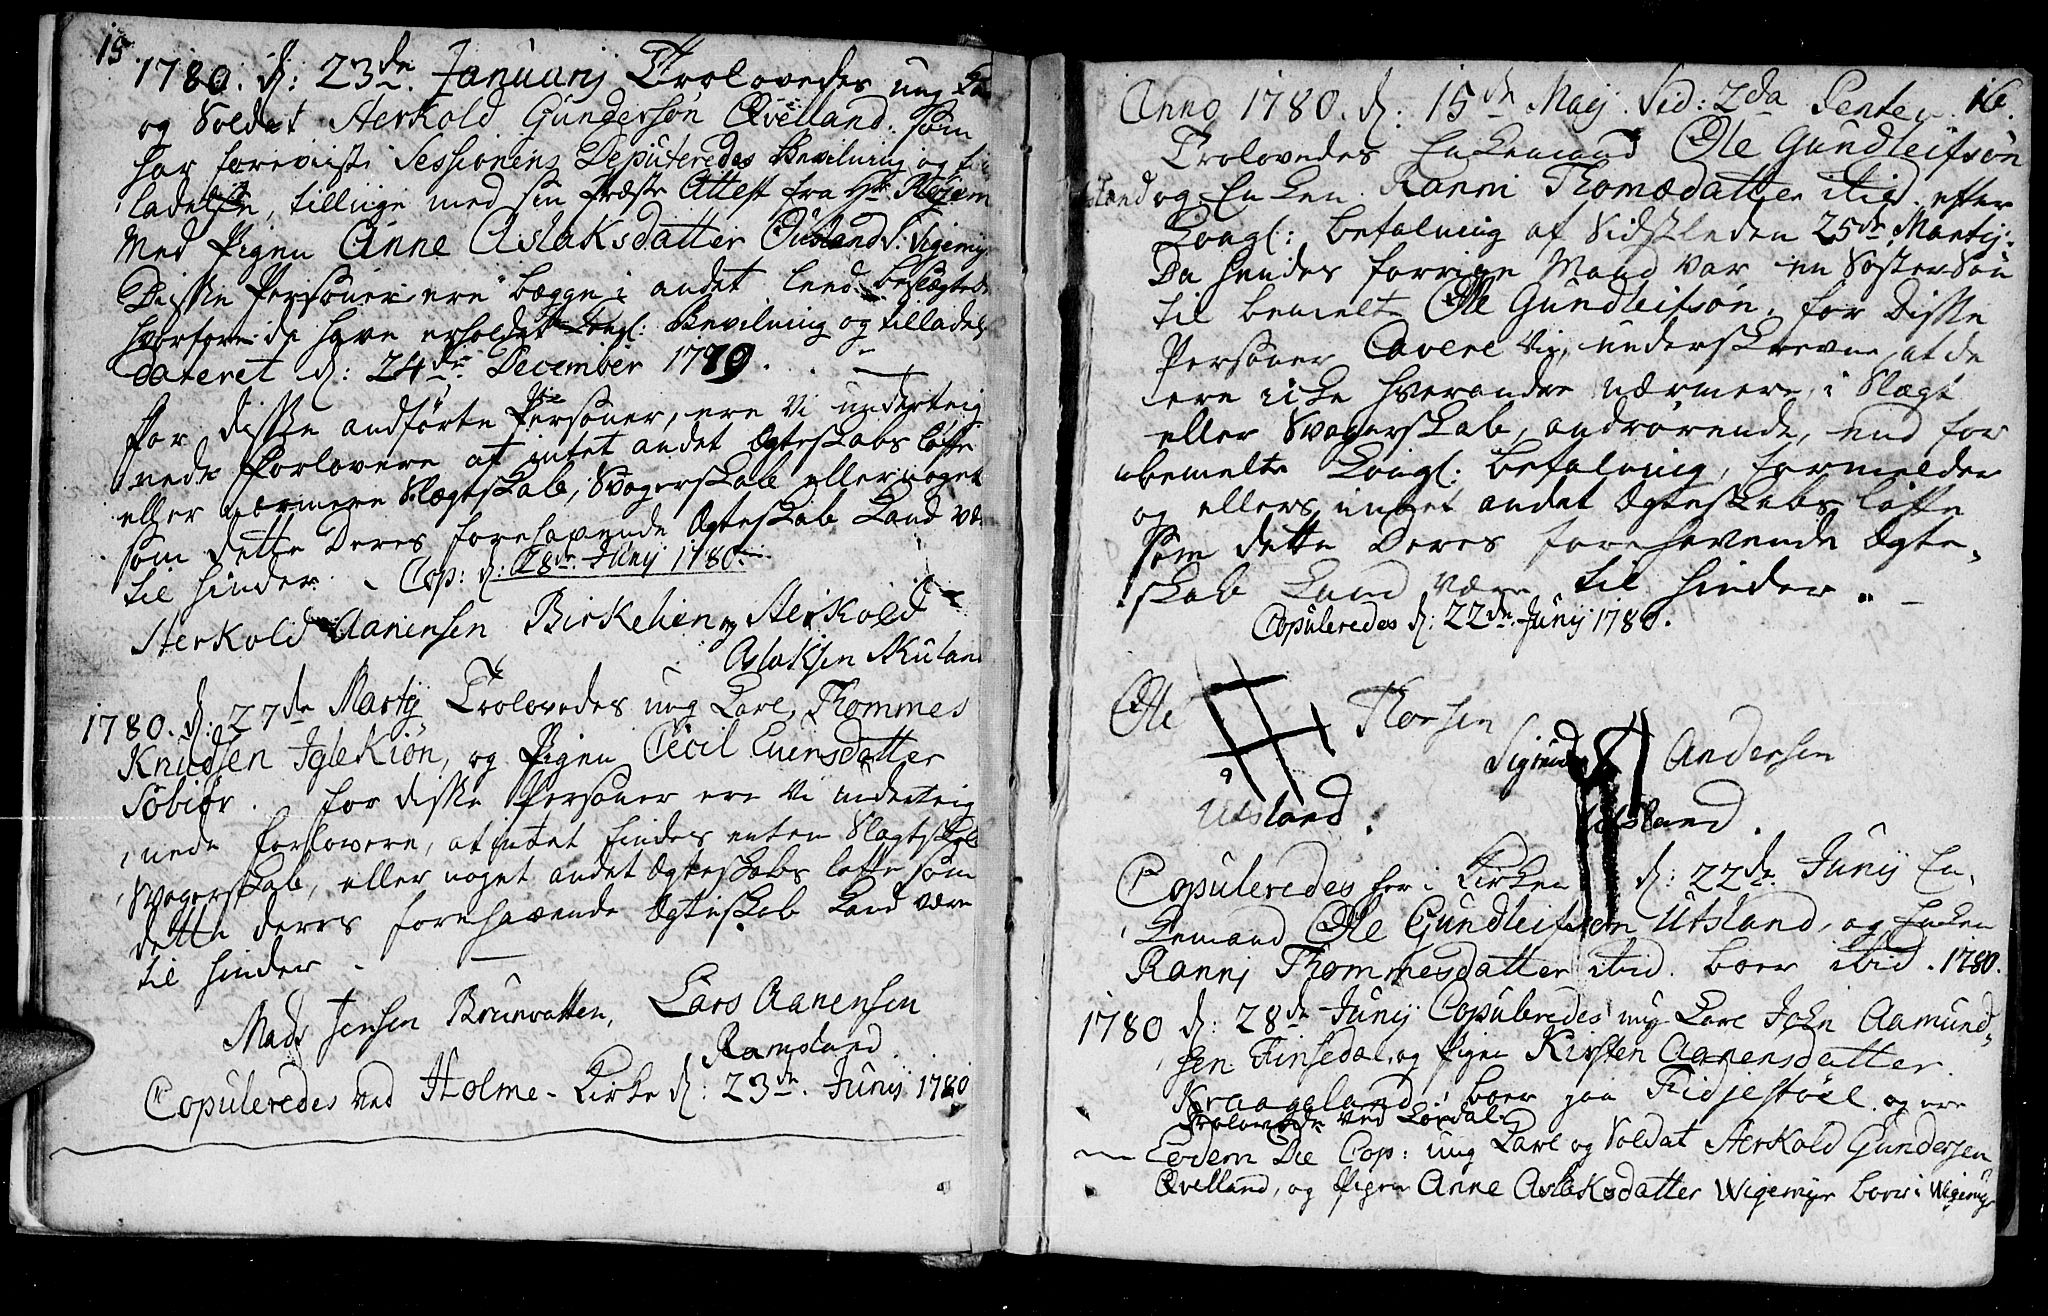 15
1780. d: 23de Januarij Trolovedes ung
og Soldat Aerkold Gundersøn Øvelland. som
har foreviist Sessionens Deputeredes Bevilning og
ladelse, tillige med sin Præste Attest fra Hr.
Med Pigen Anne Aslaksdatter Ousland i Vigemyr
Disse Personer ere begge i andet leed beslægtede
hvorfore de have erholdet Kongl: Bevilning og tilladelse
dateret d: 24de December 1779.
For disse andførte Personer, ere Vi underteig-
nede Forlovere at intet andet Ægteskabs løfte
eller nærmere Slægtskab, Svogerskab eller noget
som dette Deres forehavende Ægteskab Kand være
til hinder. Cop: d: 28de Junij 1780.
Aerkold Aanensen Birkelien og Aerkold
Aslaksen Skuland
1780. d: 27de Martij Trolovedes ung Karl Thommes
Knudsen Iglekiøn, og Pigen Cecil Evensdatter
Søbiør. For disse Personer ere Vi underteig
nede Forlovere, at intet findes enten Slægtskab
Svogerskab, eller noget andet Ægteskabs løfte som
dette deres forehavende Ægteskab Kand være
til hinder
Mads Jensen Brunvatten, Lars Aanensen
Ramsland
Copuleredes ved Holme-Kirke d: 23de Junij 1780
16.
Anno 1780. d: 15de Maij. Fid: 2da Pentec.
Trolovedes Enkemand Ole Gundleifsøn
Utsland og Enken Ranni Thomædatter ibid. efter
Kongl: Befalning af Sidstleden 25de Martij.
Da hendes forrige Mand var en Søster Søn
til bemelte Ole Gundleifsøn, for Disse
Personer Cavere Vi underskrevne, at de
ere icke hverandre nærmere i Slægt
eller Svogerskab, andrørende, end for
bemelte Kongl: Befalning, formelder
og ellers intet andet Ægteskabs løfte
som dette Deres forehavende Ægte-
skab Kand være til hinder.
Copuleredes d: 22de Junij 1780.
Ole Thorsen
Utsland.
Sigrud Andersen
Utsland.
Copuleredes her i Kirken d: 22de Junij En-
kemand Ole Gundleifsøn Utsland, og Enken
Rannj Thommesdatter ibid. boer ibid. 1780.
1780 d: 28de Junij Copuleredes ung Karl John Aamund-
sen Finsedal, og Pigen Kirsten Aanensdatter
Kraageland, boer paa Fidjestøel. og ere
Trolovede ved Løvdal.
Eodem Die Cop: ung Karl og Soldat Aerkold Gundersen
Øvelland, og Pigen Anne Aslaksdatter Wigemyr boer i Wigemyr